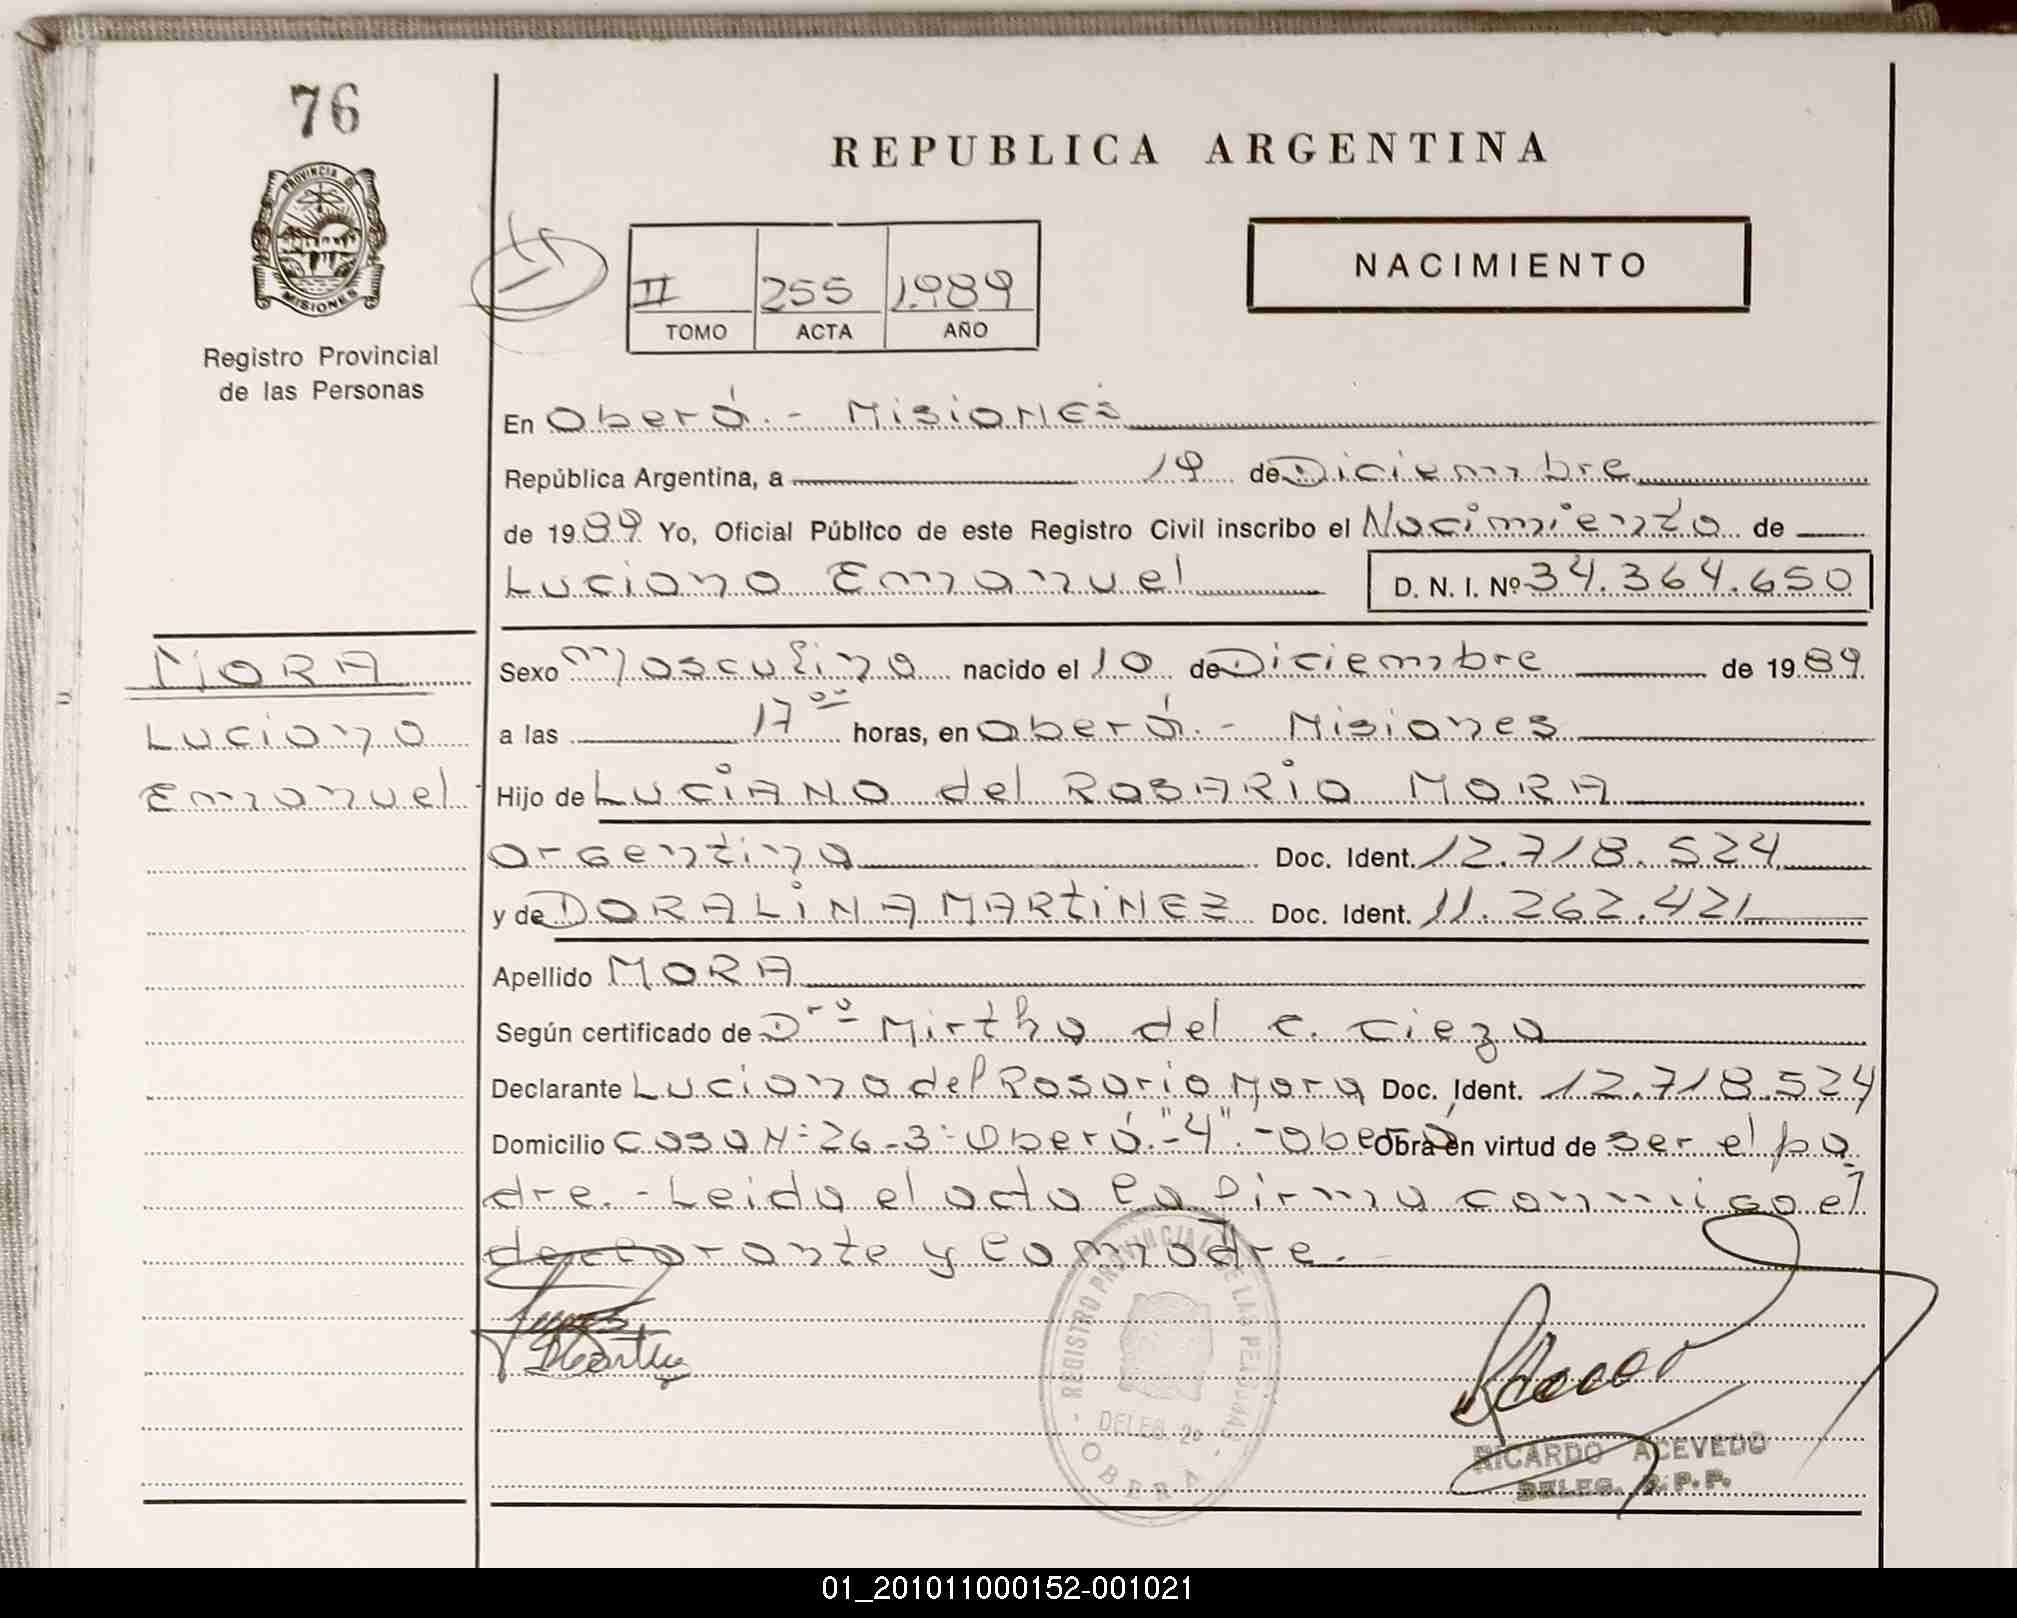 76
REPUBLICA ARGENTINA
PROVINCIA DE
MISIONES
Registro Provincial
de las Personas
II 255 1.989
TOMO ACTA AÑO
NACIMIENTO
En Oberá.- Misiones
República Argentina, a 19 de Diciembre
de 1989 Yo, Oficial Público de este Registro Civil inscribo el Nacimiento de
Luciano Emanuel D. N. I. Nº 34.364.650
MORA
Luciano
Emanuel
Sexo Masculino nacido el 10 de Diciembre de 1989
a las 17 oo horas, en Oberá.- Misiones
Hijo de LUCIANO del ROSARIO MORA
argentino Doc. Ident. 12.718.524
y de DORALINA MARTINEZ Doc. Ident. 11.262.421
Apellido MORA
Según certificado de Dra Mirtha del C. Cieza
Declarante Luciano del Rosario Mora Doc. Ident. 12.718.524
Domicilio Casa Nº 26-3º Oberá.-"4".-Oberá Obra en virtud de ser el pa
dre.- Leida el acta la firma conmigo el
declarante y la madre.-
REGISTRO PROVINCIAL DE LAS PERSONAS
DELEG. 2a
OBERA
RICARDO ACEVEDO
DELEG. R.P.P.
01_201011000152-001021